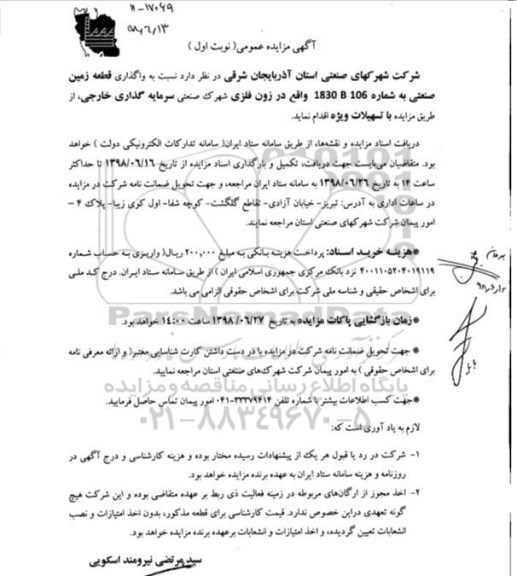 ۱۱-۱۷۰۶۹
۹۸/۶/۱۳
آگهی مزایده عمومی( نوبت اول )
شرکت شهرکهای صنعتی استان آذربایجان شرقی در نظر دارد نسبت به واگذاری قطعه زمین
صنعتی به شماره 106 B 1830 واقع در زون فلزی شهرک صنعتی سرمایه گذاری خارجی، از
طریق مزایده با تسهیلات ویژه اقدام نماید.
دریافت اسناد مزایده و نقشه‌ها، از طریق سامانه ستاد ایران( سامانه تدارکات الکترونیکی دولت ) خواهد
بود. متقاضیان می‌بایست جهت دریافت، تکمیل و بارگذاری اسناد مزایده از تاریخ ۱۳۹۸/۰۶/۱۶ تا حداکثر
ساعت ۱۴ به تاریخ ۱۳۹۸/۰۶/۲۶ به سامانه ستاد ایران مراجعه، و جهت تحویل ضمانت نامه شرکت در مزایده
در ساعات اداری به آدرس: تبریز- خیابان آزادی- تقاطع گلگشت- کوچه شفا- اول کوی زیبا- پلاک ۴ –
امور پیمان شرکت شهرکهای صنعتی استان مراجعه نمایند.
*هزینه خرید اسناد: پرداخت هزینه بانکی به مبلغ ۲۰۰,۰۰۰ ریال( واریزی به حساب شماره
۴۰۰۱۱۰۵۲۰۴۰۱۹۱۱۹ نزد بانک مرکزی جمهوری اسلامی ایران ) از طریق سامانه ستاد ایران. درج کد ملی
برای اشخاص حقیقی و شناسه ملی شرکت برای اشخاص حقوقی الزامی می باشد.
*زمان بازگشایی پاکات مزایده به تاریخ ۱۳۹۸/۰۶/۲۷ ساعت ۱۴:۰۰ خواهد بود.
* جهت تحویل ضمانت نامه شرکت در مزایده با در دست داشتن کارت شناسایی معتبر( و ارائه معرفی نامه
برای اشخاص حقوقی ) به امور پیمان شرکت شهرک‌های صنعتی استان مراجعه نمایید.
*جهت کسب اطلاعات بیشتر با شماره تلفن ۳۳۳۷۹۴۱۴-۰۴۱ امور پیمان تماس حاصل فرمایید.
لازم به یاد آوری است که:
۱- شرکت در رد یا قبول هر یک از پیشنهادات رسیده مختار بوده و هزینه کارشناسی و درج آگهی در
روزنامه و هزینه سامانه ستاد ایران به عهده برنده مزایده خواهد بود.
۲- اخذ مجوز از ارگان‌های مربوطه در زمینه فعالیت ذی ربط بر عهده متقاضی بوده و این شرکت هیچ
گونه تعهدی دراین خصوص ندارد. قیمت کارشناسی برای قطعه مذکور، بدون اخذ امتیازات و نصب
انشعابات تعیین گردیده، و اخذ امتیازات و انشعابات برعهده برنده مزایده خواهد بود.
سید مرتضی نیرومند اسکویی
ParsNamadData
پایگاه اطلاع رسانی مناقصه و مزایده
۰۲۱-۸۸۳۴۹۶۷۰-۵